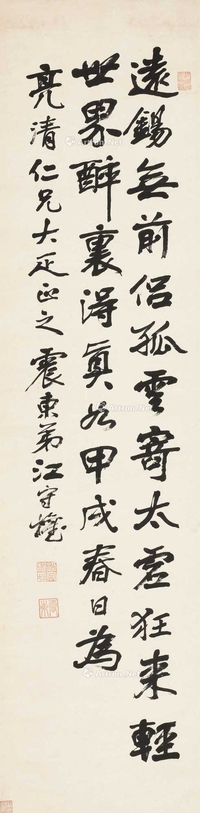 遠錫無前侶孤雲寄太虛狂来輕
世界醉裏得真如甲戌春日為
亮清仁兄大疋正之震東弟江守